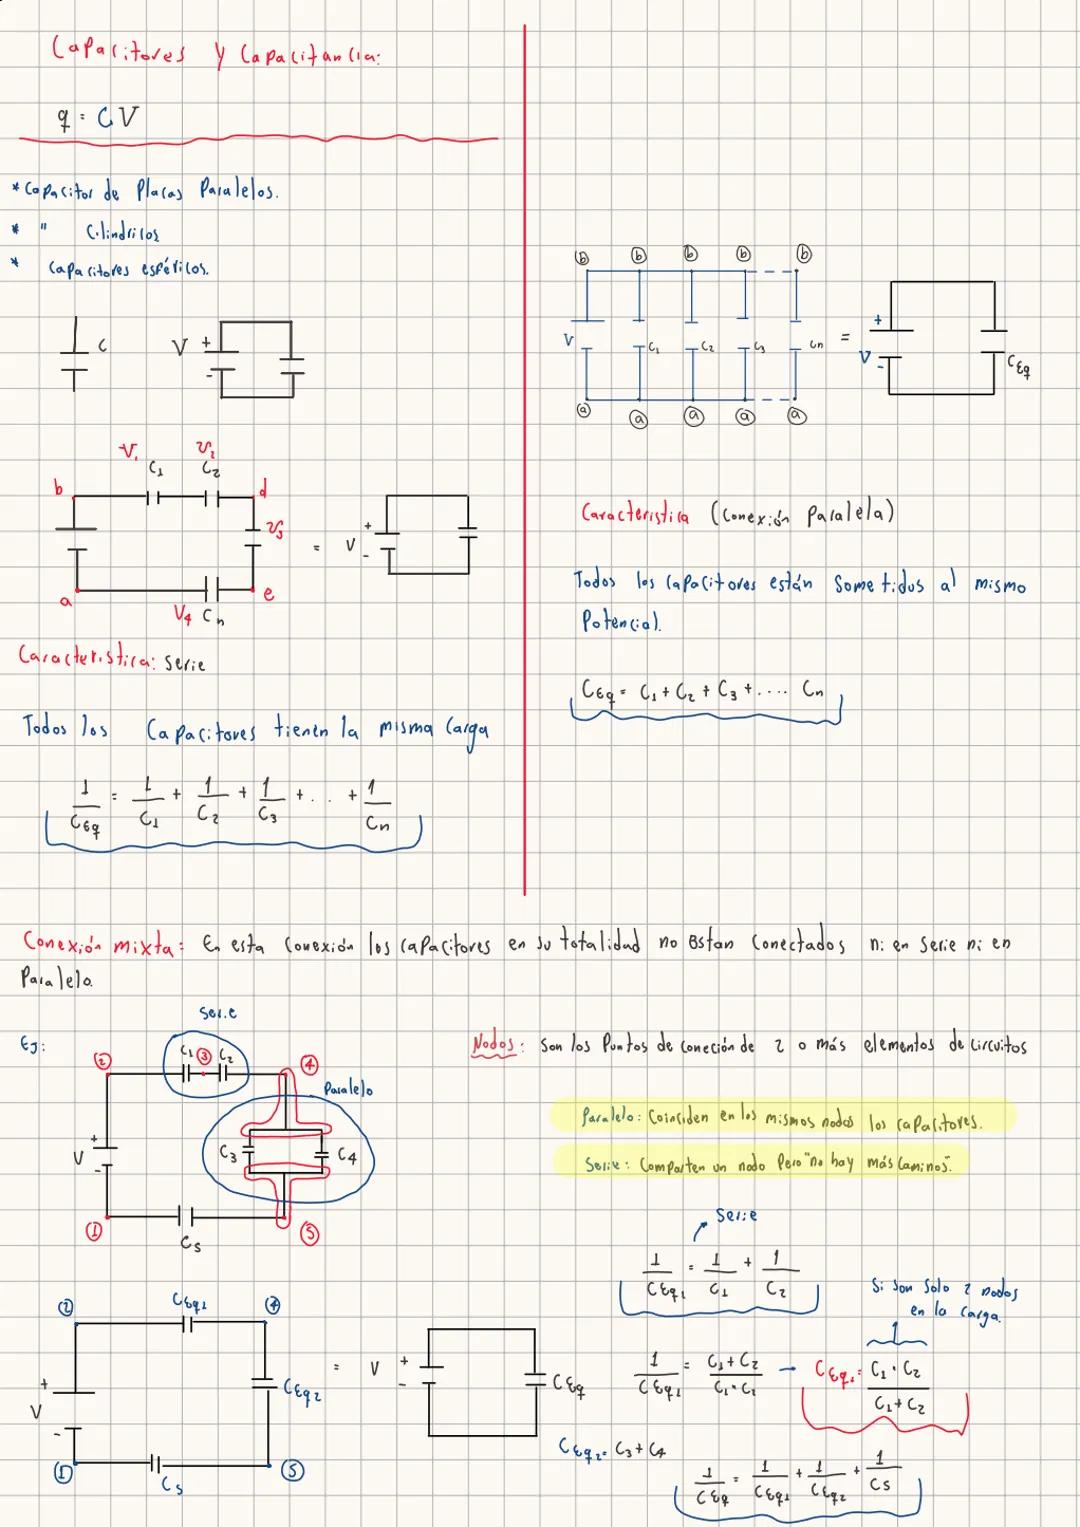 Capacitores y Capacitancia:
q = CV
* Capacitor de Placas Paralelos.
* " Cilindricos
* Capacitores esféricos.
C V + -
V₁ V₂
C₁ C₂
b d
V₃
= V + -
a e
V₄ Cn
Caracteristica: serie
Todos los Capacitores tienen la misma Carga
1/CEq = 1/C₁ + 1/C₂ + 1/C₃ + . . . + 1/Cn
b b b b b
V C₁ C₂ C₃ Cn = + V - CEq
a a a a a
Caracteristica (Conexión Paralela)
Todos los Capacitores están Sometidos al mismo
Potencial.
CEq = C₁ + C₂ + C₃ + .... Cn
Conexión mixta: En esta Conexión los capacitores en su totalidad no Estan Conectados ni en Serie ni en
Paralelo.
Ej:
Serie
2 C₁ 3 C₂ 4
Paralelo
+ V - C₃ C₄
1 C5 5
Nodos: Son los Puntos de Coneción de 2 o más elementos de Circuitos
Paralelo: Coinciden en los mismos nodos los capacitores.
Serie: Comparten un nodo Pero "no hay más Caminos".
Serie
1/CEq₁ = 1/C₁ + 1/C₂
Si Son Solo 2 nodos
en la Carga.
1/CEq₁ = C₁+C₂/C₁·C₂ → CEq₁ = C₁·C₂/C₁+C₂
CEq₂ = C₃+C₄
1/CEq = 1/CEq₁ + 1/CEq₂ + 1/C5
2 CEq₁ 4
+ V - CEq₂ = V + - CEq
1 C5 5